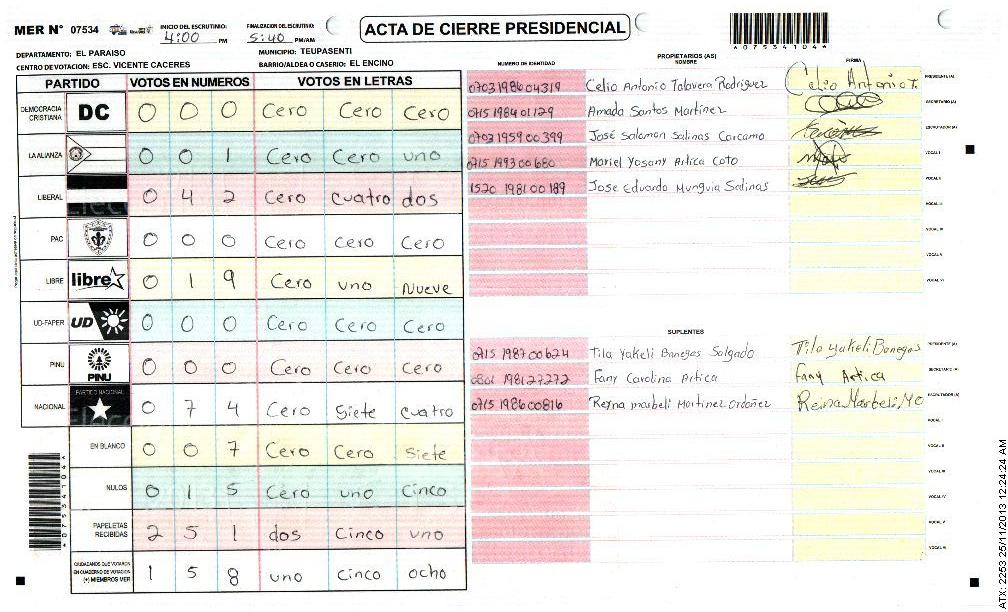 MER N° 07534
INICIO DEL ESCRUTINIO: 4:00 PM
FINALIZACION DEL ESCRUTINIO: 5:40 PM/AM
ACTA DE CIERRE PRESIDENCIAL
*07534104*
DEPARTAMENTO: EL PARAISO
MUNICIPIO: TEUPASENTI
CENTRO DE VOTACION: ESC. VICENTE CACERES
BARRIO/ALDEA O CASERIO: EL ENCINO
PARTIDO VOTOS EN NUMEROS VOTOS EN LETRAS
DEMOCRACIA CRISTIANA DC 0 0 0 Cero Cero Cero
LA ALIANZA 0 0 1 Cero Cero uno
LIBERAL 0 4 2 Cero cuatro dos
PAC 0 0 0 Cero Cero Cero
LIBRE libre 0 1 9 Cero uno Nueve
UD-FAPER UD 0 0 0 Cero Cero Cero
PINU PINU 0 0 0 Cero Cero Cero
NACIONAL PARTIDO NACIONAL 0 7 4 Cero Siete cuatro
EN BLANCO 0 0 7 Cero Cero Siete
NULOS 0 1 5 Cero uno Cinco
PAPELETAS RECIBIDAS 2 5 1 dos Cinco uno
CIUDADANOS QUE VOTARON EN CUADERNO DE VOTACION (+) MIEMBROS MER 1 5 8 uno Cinco ocho
*07534104*
PROPIETARIOS (AS)
NUMERO DE IDENTIDAD NOMBRE FIRMA
0703198604319 Celio Antonio Talavera Rodriguez Celio Antonio T. PRESIDENTE (A)
0715 1984 01129 Amada Santos Martinez SECRETARIO (A)
0703 1959 00399 José Salomon Salinas Carcamo ESCRUTADOR (A)
0715 1993 00680 Mariel Yosany Artica Coto VOCAL I
1520 1981 00189 Jose Eduardo Munguia Salinas VOCAL II
VOCAL III
VOCAL IV
VOCAL V
VOCAL VI
SUPLENTES
0715 1987 00624 Tila Yakeli Banegas Salgado Tila Yakeli Banegas PRESIDENTE (A)
0801 198127272 Fany Carolina Artica Fany Artica SECRETARIO (A)
0715 1986 00816 Reyna marbeli Martinez Ordoñez Reina Marbeli MO ESCRUTADOR (A)
VOCAL I
VOCAL II
VOCAL III
VOCAL IV
VOCAL V
VOCAL VI
ATX: 2253 25/11/2013 12:24:24 AM